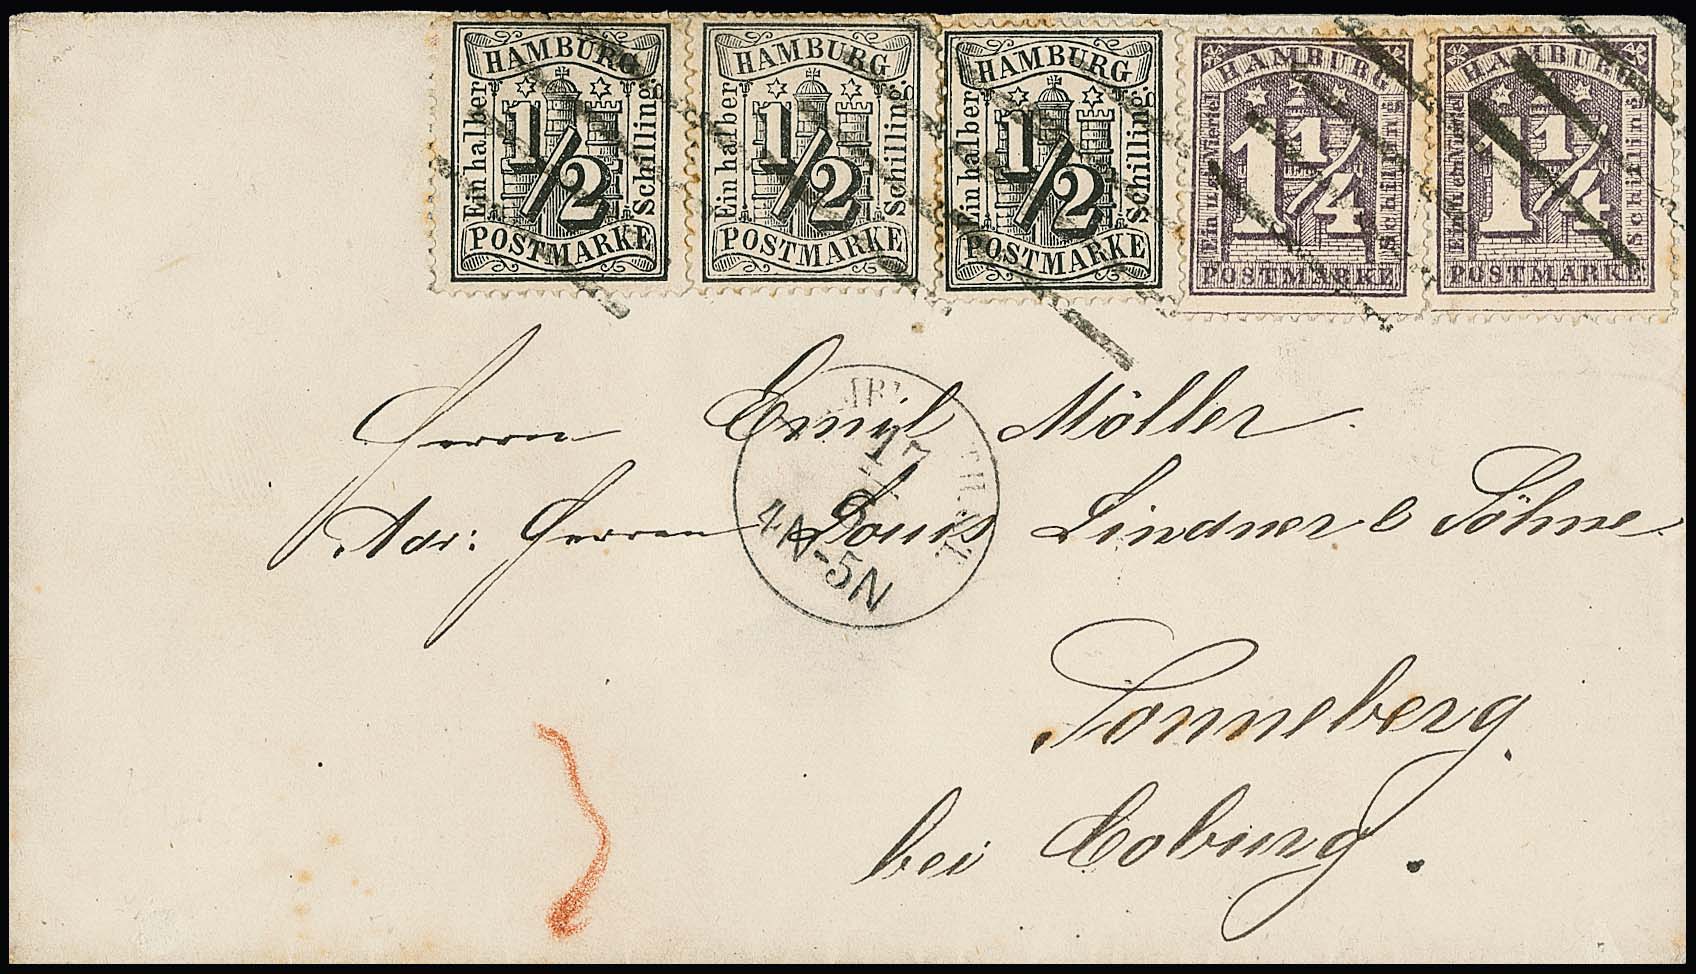 HAMBURG HAMBURG HAMBURG HAMBURG HAMBURG
Ein halber Schilling. Ein halber Schilling. Ein halber Schilling. Ein u. ein Viertel Schilling Ein u. ein Viertel Schilling
1/2 1/2 1/2 1 1/4 1 1/4
POSTMARKE POSTMARKE POSTMARKE POSTMARKE POSTMARKE
Herrn Emil Möller
17
Adr: Herren Louis Lindner & Söhne
4N-5N
Sonneberg
bei Coburg.